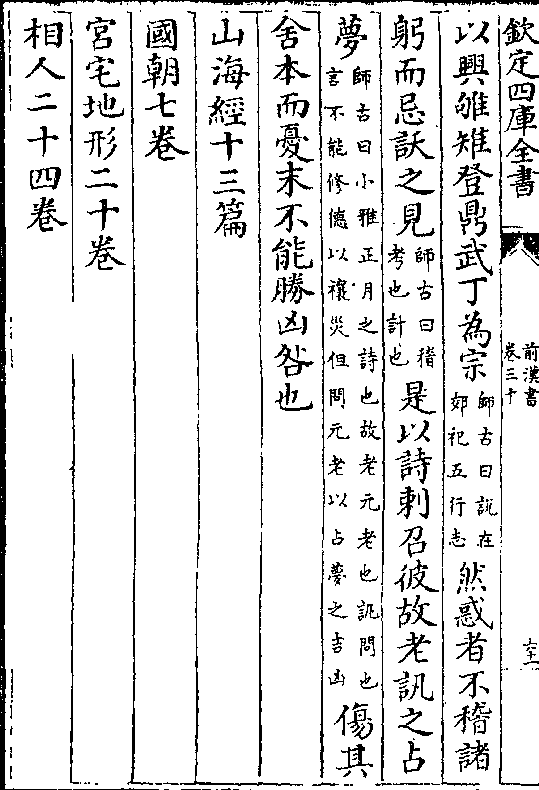 欽定四庫全書
前漢書
卷三十
六十一
以興雊雉登鼎武丁為宗師古曰說在郊祀五行志然惑者不稽諸
躬而忌訞之見師古曰稽考也計也是以詩刺召彼故老訊之占
夢師古曰小雅正月之詩也故老元老也訊問也言不能修德以禳災但問元老以占夢之吉凶傷其
舍本而憂末不能勝凶咎也
山海經十三篇
國朝七卷
宮宅地形二十卷
相人二十四卷